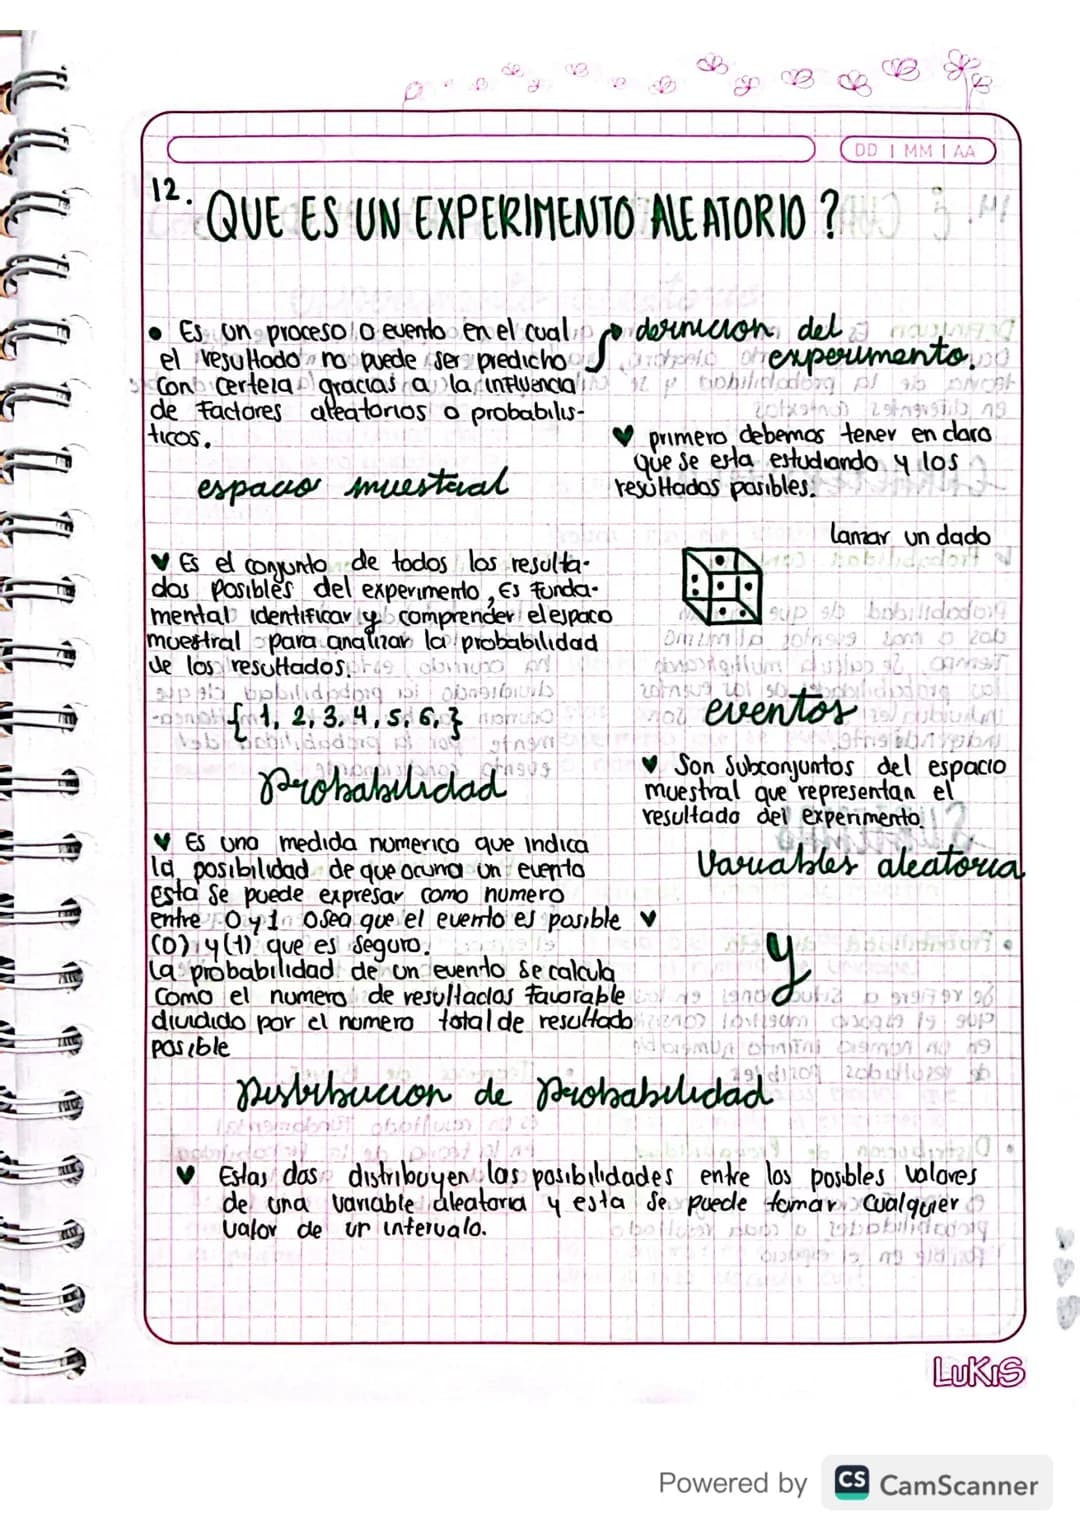 DD | MM | AA
12. QUE ES UN EXPERIMENTO ALEATORIO ?
• Es un proceso o evento en el cual
el resultado no puede ser predicho
con certeza gracias a la influencia
de factores aleatorios o probabilis-
ticos.
definicion del
experimento.
♥ primero debemos tener en claro
que se esta estudiando y los
resultados posibles.
espacio muestral
lanzar un dado
♥ Es el conjunto de todos los resulta-
dos posibles del experimento, Es funda-
mental identificar y comprender el espacio
muestral para analizar la probabilidad
de los resultados.
{1, 2, 3, 4, 5, 6,}
eventos
♥ Son Subconjuntos del espacio
muestral que representan el
resultado del experimento.
Probabilidad
♥ Es una medida numerica que indica
la posibilidad de que ocurra un evento
esta se puede expresar como numero
entre 0 y 1 osea que el evento es posible ♥
(0) y (1) que es seguro.
La probabilidad de un evento se calcula
como el numero de resultados favorable
dividido por el numero total de resultado
posible
Variables aleatoria
y
Distribucion de Probabilidad
♥ Estas dos distribuyen las posibilidades entre los posbles valores
de una variable aleatoria y esta se puede tomar cualquier
valor de un intervalo.
LUKIS
Powered by CS CamScanner